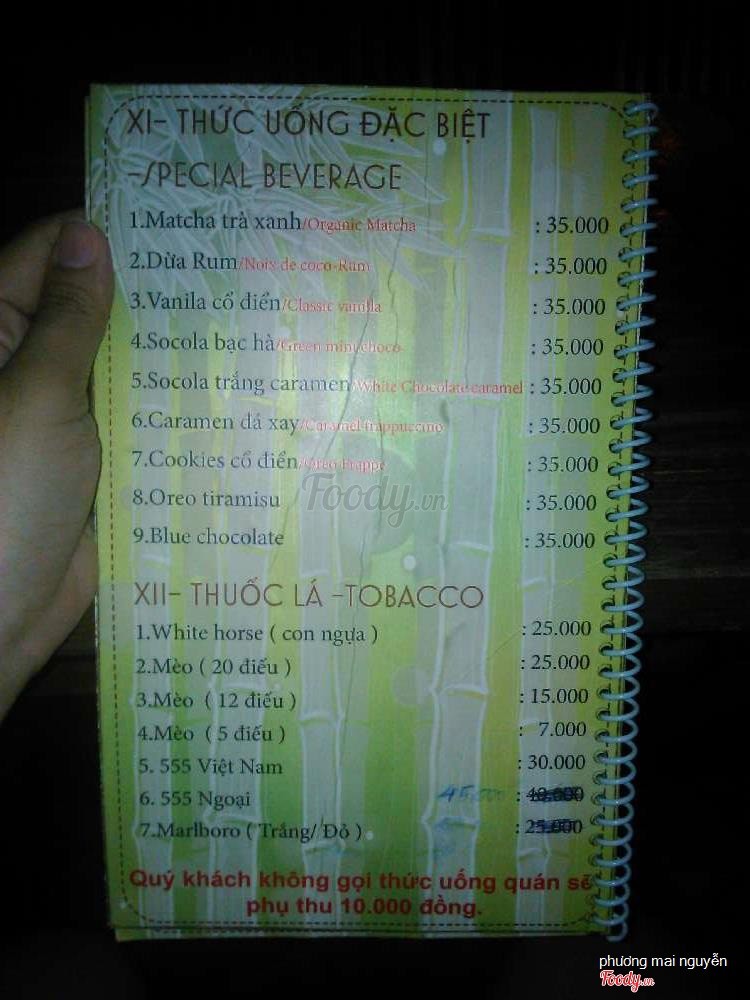 XI- THỨC UỐNG ĐẶC BIỆT
-SPECIAL BEVERAGE
1.Matcha trà xanh/Organic Matcha : 35.000
2.Dừa Rum/Noix de coco-Rum : 35.000
3.Vanila cổ điển/Classic vanilla : 35.000
4.Socola bạc hà/Green mint choco : 35.000
5.Socola trắng caramen/White Chocolate caramel : 35.000
6.Caramen đá xay/Caramel frappuccino : 35.000
7.Cookies cổ điển/Oreo Frappe : 35.000
8.Oreo tiramisu : 35.000
9.Blue chocolate : 35.000
Foody.vn
XII- THUỐC LÁ -TOBACCO
1.White horse ( con ngựa ) : 25.000
2.Mèo ( 20 điếu ) : 25.000
3.Mèo ( 12 điếu ) : 15.000
4.Mèo ( 5 điếu ) : 7.000
5. 555 Việt Nam : 30.000
6. 555 Ngoại 45.000 : 40.000
7.Marlboro ( Trắng/ Đỏ ) : 25.000
Quý khách không gọi thức uống quán sẽ
phụ thu 10.000 đồng.
phương mai nguyễn
Foody.vn